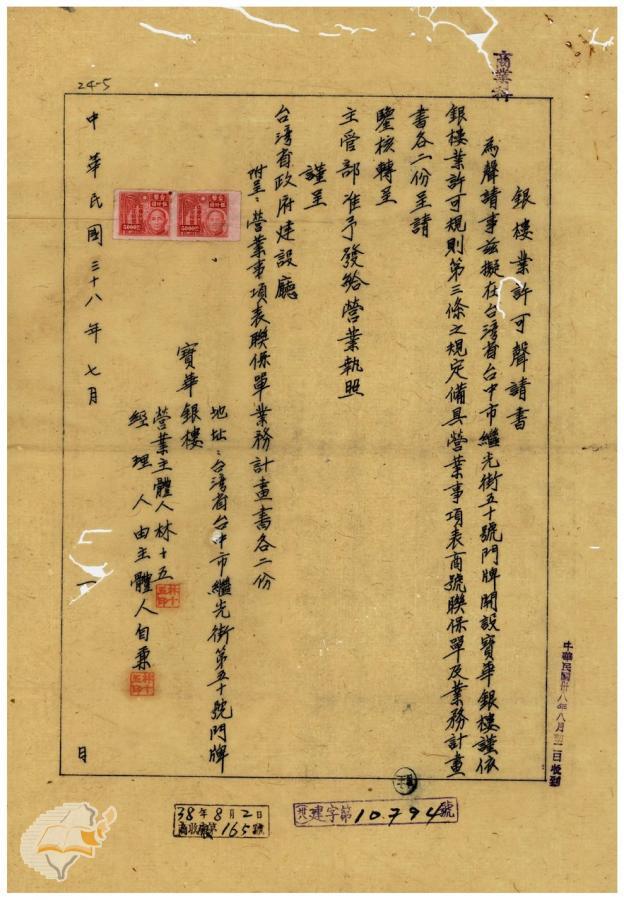 24-5
商業科
銀樓業許可聲請書
為聲請事茲擬在台灣省台中市繼光街五十號門牌開設寶華銀樓謹依
銀樓業許可規則第三條之規定備具營業事項表商號聯保單及業務計畫
書各二份呈請
鑒核轉呈
主管部准予發給營業執照
謹呈
台灣省政府建設廳
附呈：營業事項表聯保單業務計畫書各二份
地址：台灣省台中市繼光街第五十號門牌
寶華銀樓
營業主體人林十五
林十五印
經理人由主體人自兼
林十五印
中華民國三十八年七月一日
5000
5000
中華民國卅八年八月二日收到
38年8月2日
商收 第165號
建字第10.794號